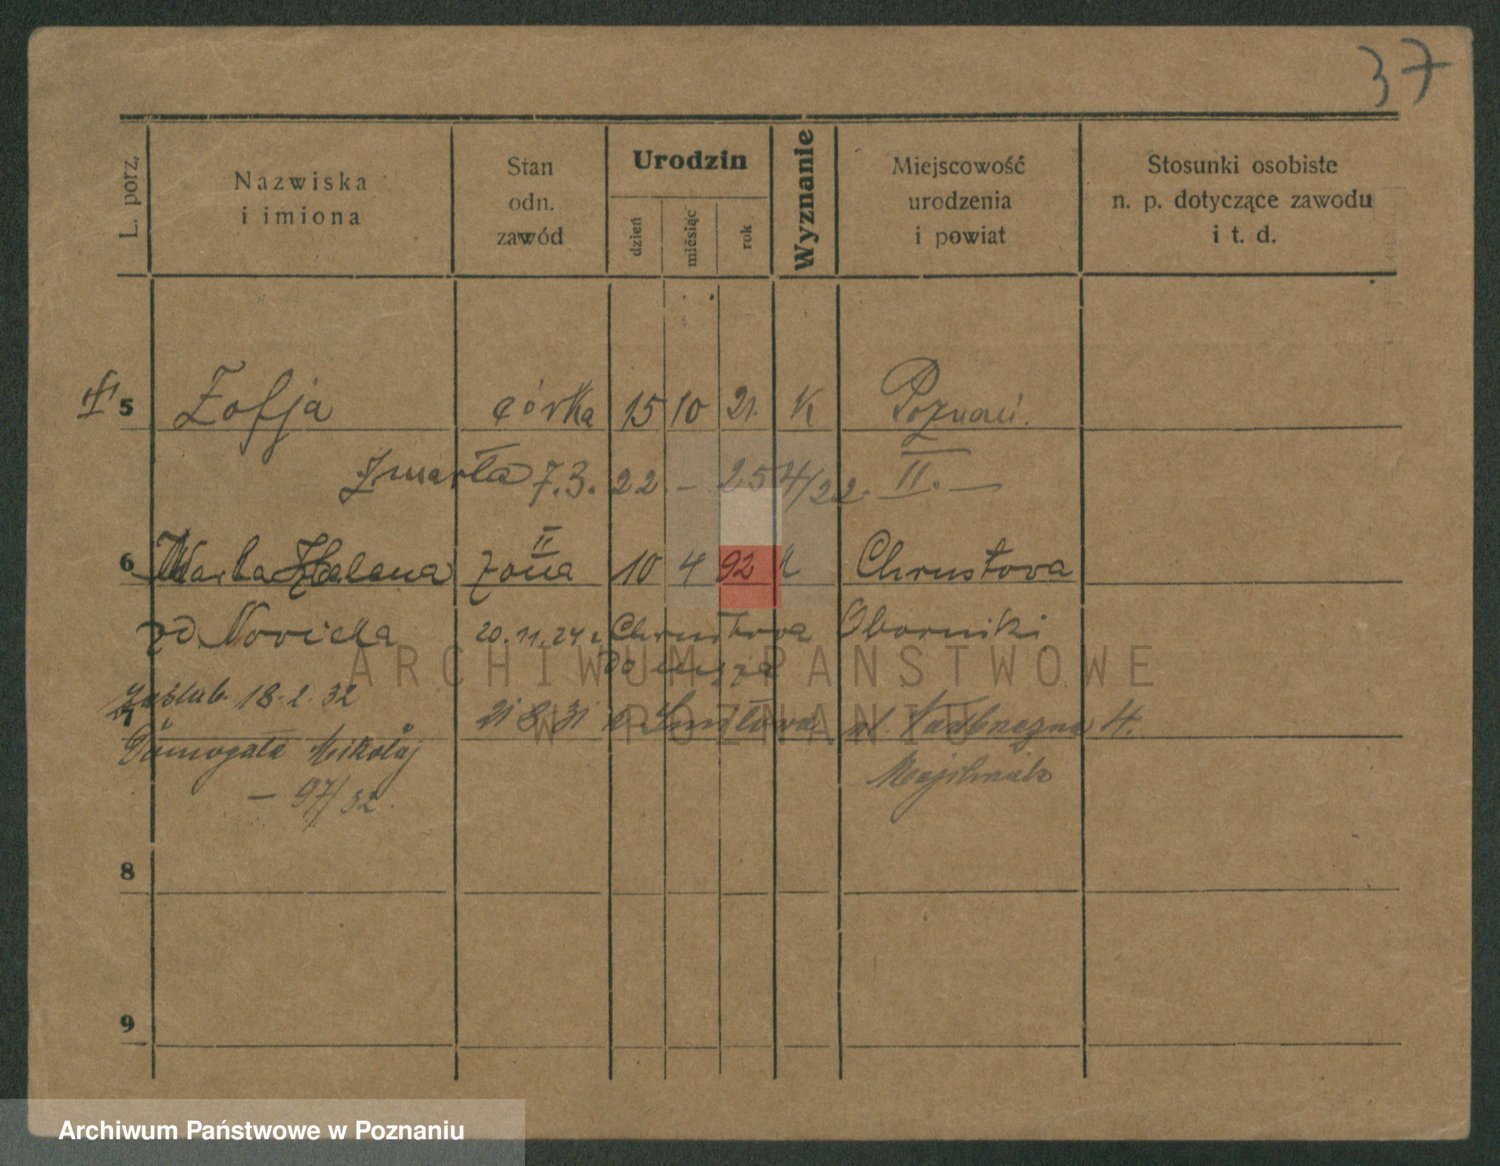 37
L. porz.
Nazwiska
i imiona
Stan
odn.
zawód
Urodzin
dzień
miesiąc
rok
Wyznanie
Miejscowość
urodzenia
i powiat
Stosunki osobiste
n. p. dotyczące zawodu
i t. d.
5 Zofja córka 15 10 21. K Poznań.
Zmarła 7.3.22 - 254/22. II. —
II
6 Helena żona 10 4 92 k Chrustova
zd. Novicka 20.11.24 z Chrustova Oborniki
do męża
zaślub. 18.2.32
7 21 8 31 4.
Domogała Mikołaj
- 97/32.
8
9
ARCHIWUM PAŃSTWOWE
W POZNANIU
Archiwum Państwowe w Poznaniu